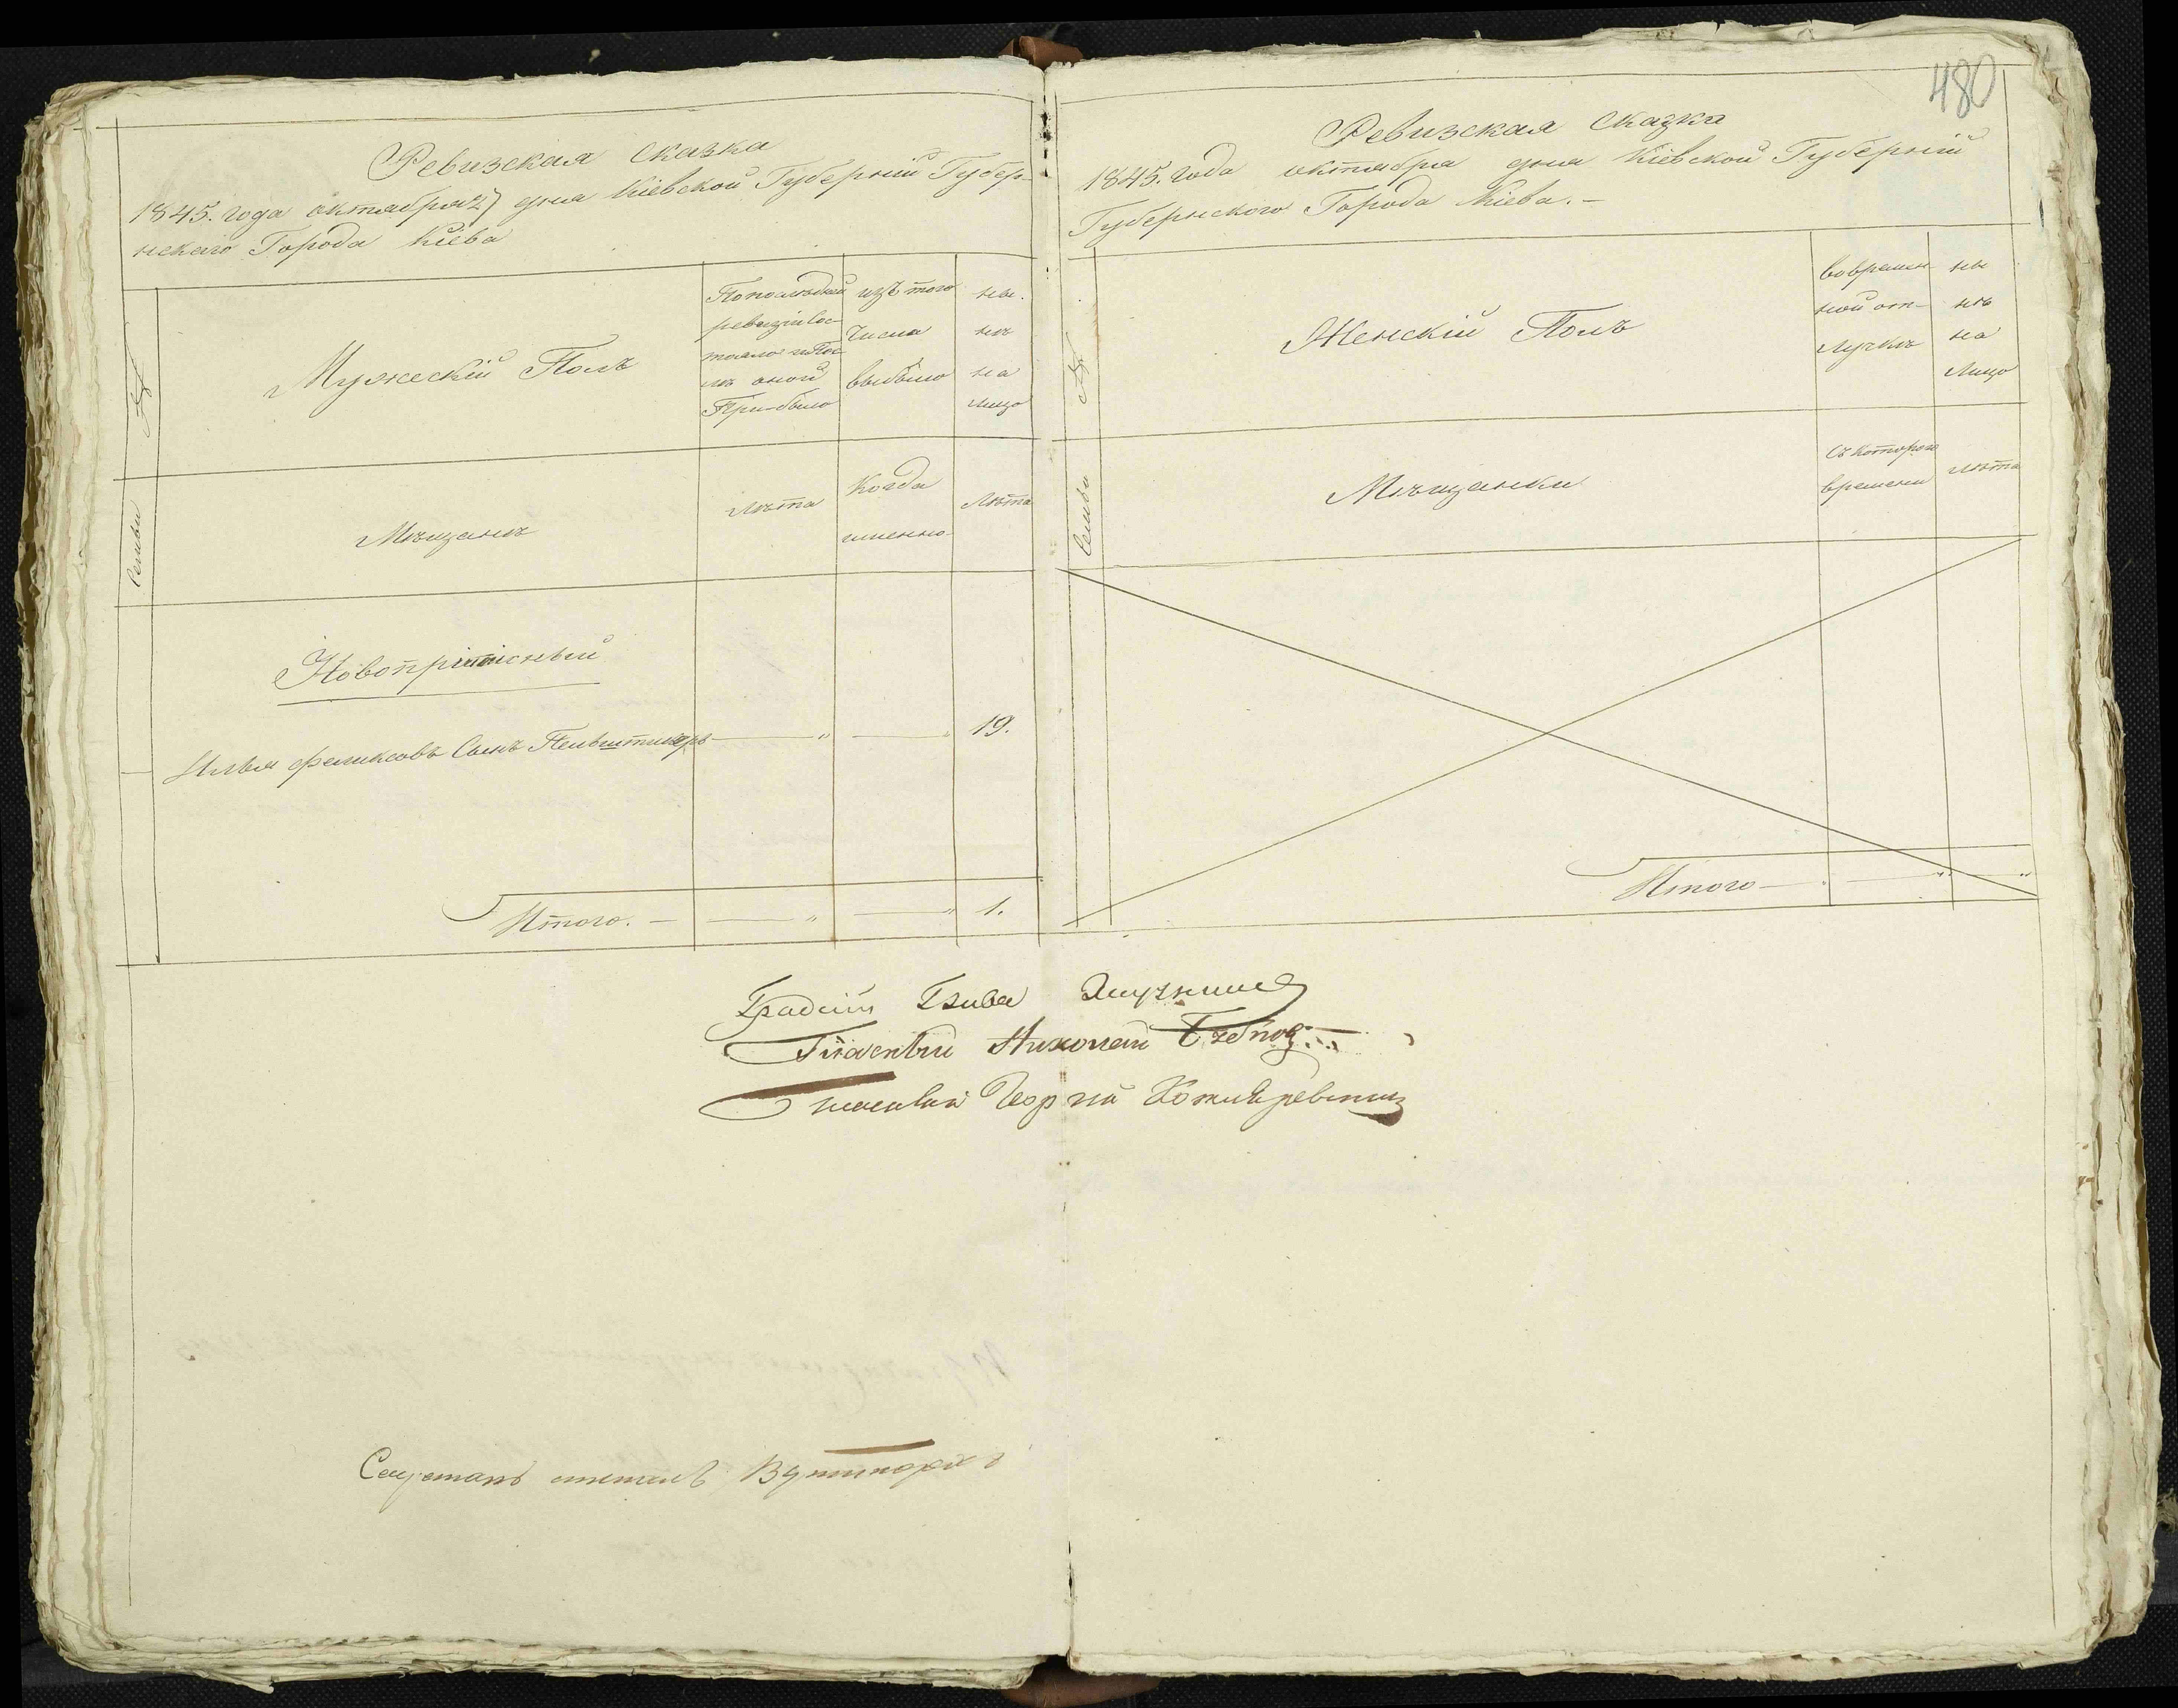 480
Ревизская Сказка
1845. года октября 27 дня Кіевской Губерніи Губер-
нскаго Города Кіева
№
Мужескій Полъ
По последней
ревизіи сос-
тояло и пос-
лѣ оной
При-было
изъ того
числа
выбыло
ны-
нѣ
на
лицо
Семьи
Мѣщанъ
Лѣта
Когда
именно-
Лѣта
Новоприписный
Илья Феликсовъ Сынъ 19.
Итого. — 1.
Ревизская Сказка
1845. года октября дня Кіевской Губерніи
Губернского Города Кіева. –
№
Женскій Полъ
во времен-
ной от-
лучкѣ
ны
нѣ
на
лицо
Семьи
Мѣщанки
съ котораго
времени
лѣта
Итого —
Градскій Глава
Гласный Николай
Гласный Георгій